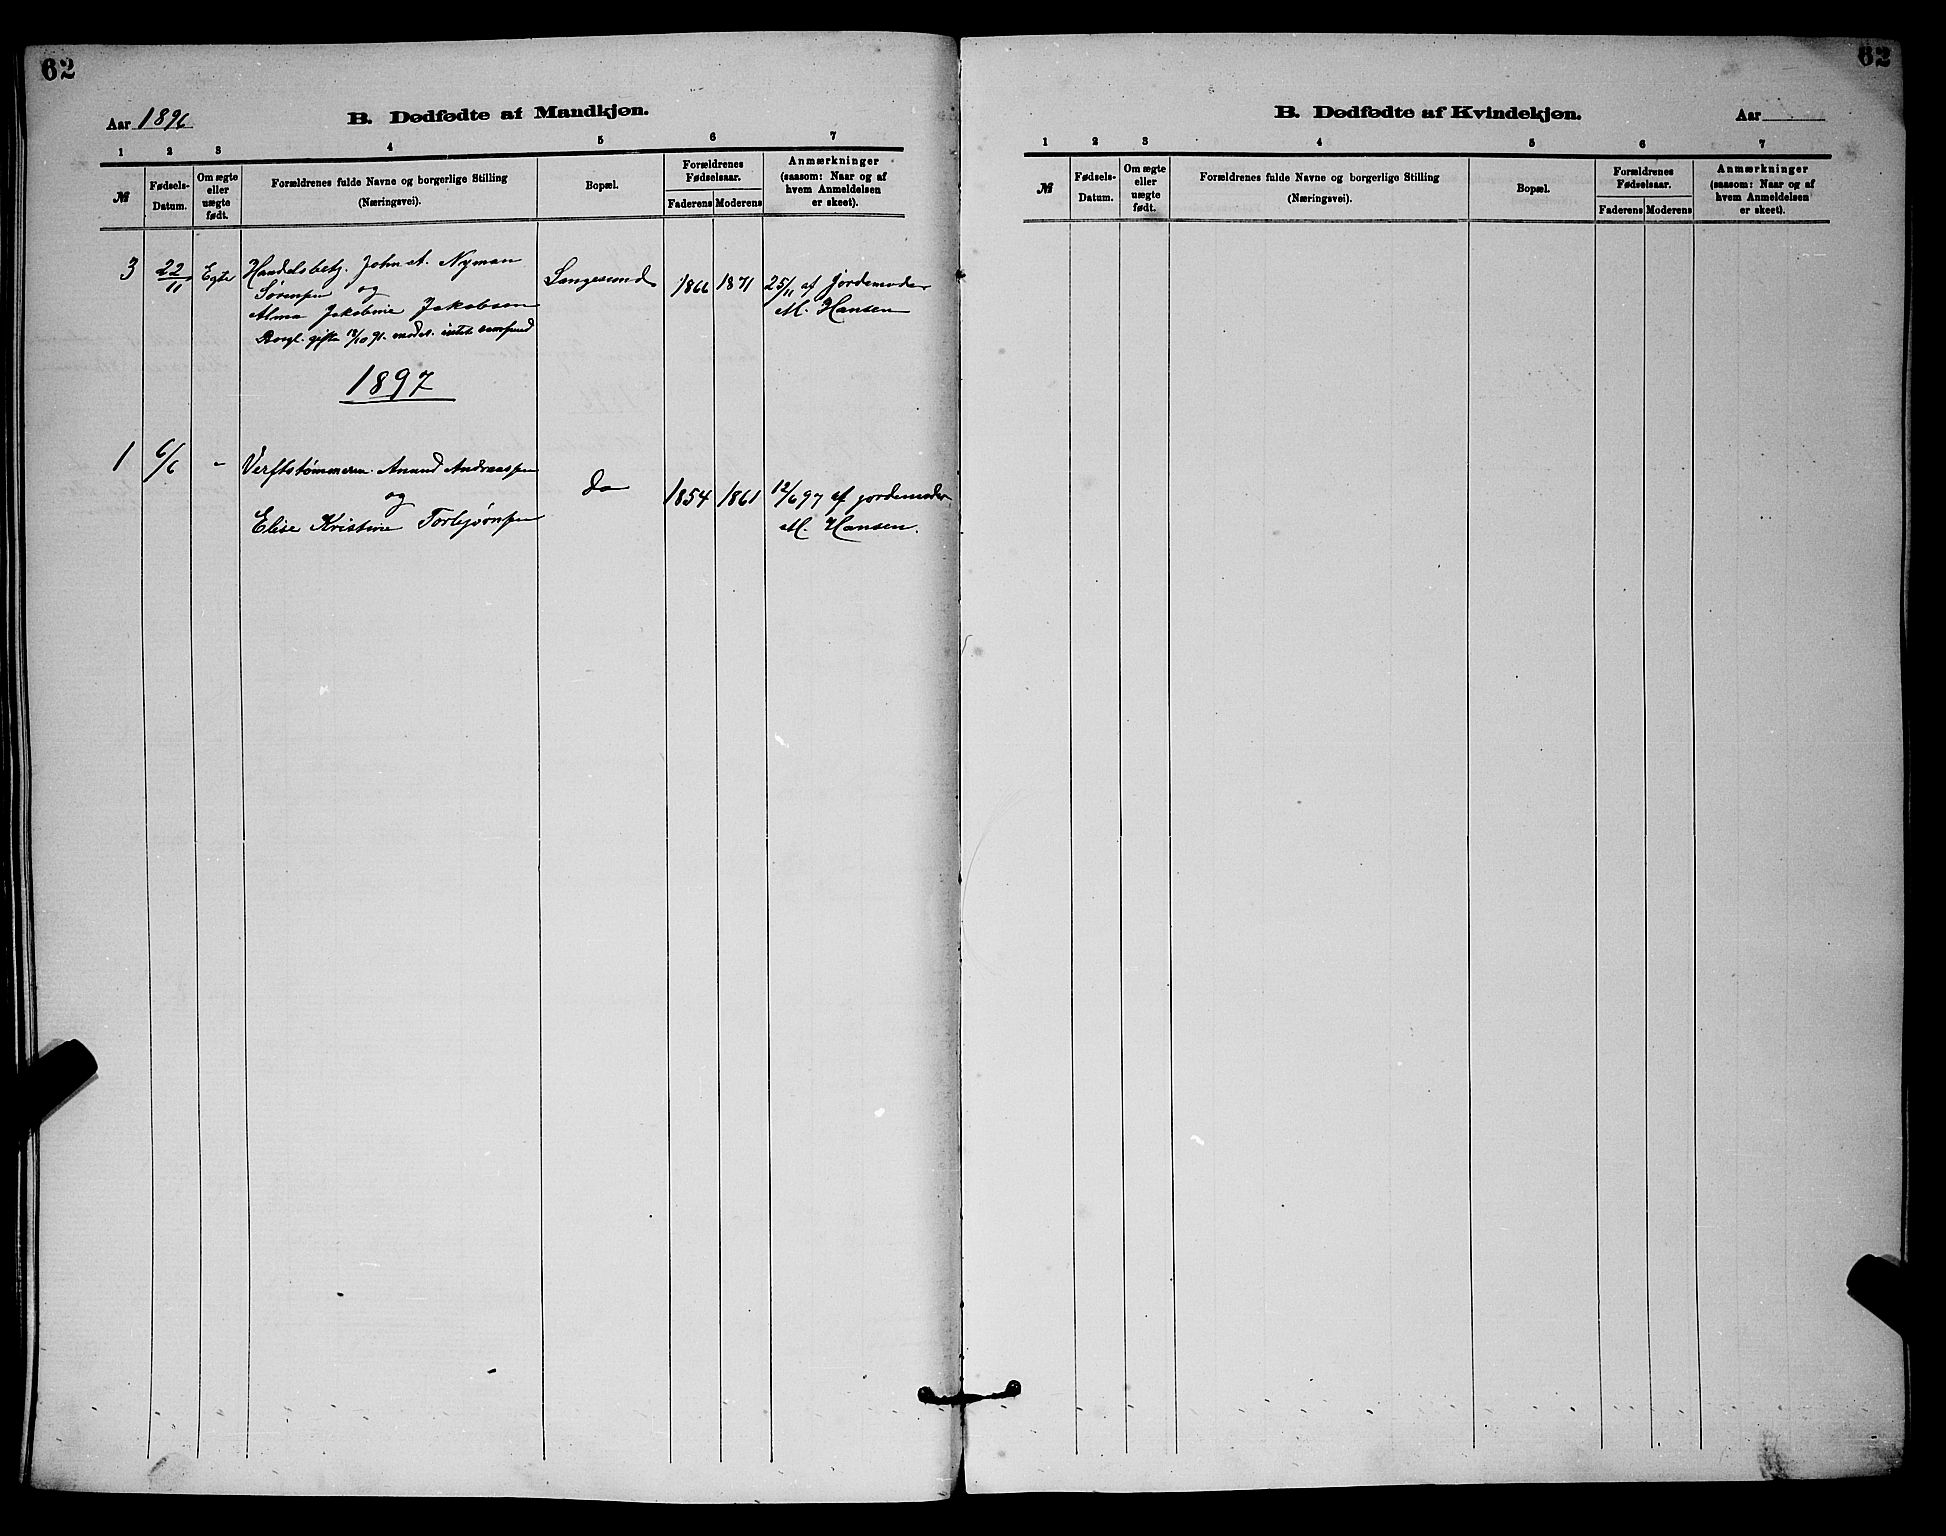 62
Aar 1896
B. Dødfødte af Mandkjøn.
1 2 3 4 5 6 7
№
Fødsels-
Datum.
Om ægte
eller
uægte
født.
Forældrenes fulde Navne og borgerlige Stilling
(Næringsvei).
Bopæl.
Forældrenes
Fødselsaar.
Faderens Moderens
Anmærkninger
(saasom: Naar og af
hvem Anmeldelsen
er skeet).
3 22/11 Egte Handelsbetj. John A. Nyman Langesund 1866 1871 25/11 af Jordemoder
Sørensen og
M. Hansen
Alma Jakobine Jakobsen
Borgl. gifte 91. intet samfund
1897
1 6/6 - Verftstømmerm. Anund Andreassen do 1854 1861 12/6 97 af jordemoder
og
Elise Kristine Torbjørnsen M. Hansen.
62
B. Dødfødte af Kvindekjøn.
Aar
1 2 3 4 5 6 7
№
Fødsels-
Datum.
Om ægte
eller
uægte
født.
Forældrenes fulde Navne og borgerlige Stilling
(Næringsvei).
Bopæl.
Forældrenes
Fødselsaar.
Faderens Moderens
Anmærkninger
(saasom: Naar og af
hvem Anmeldelsen
er skeet).